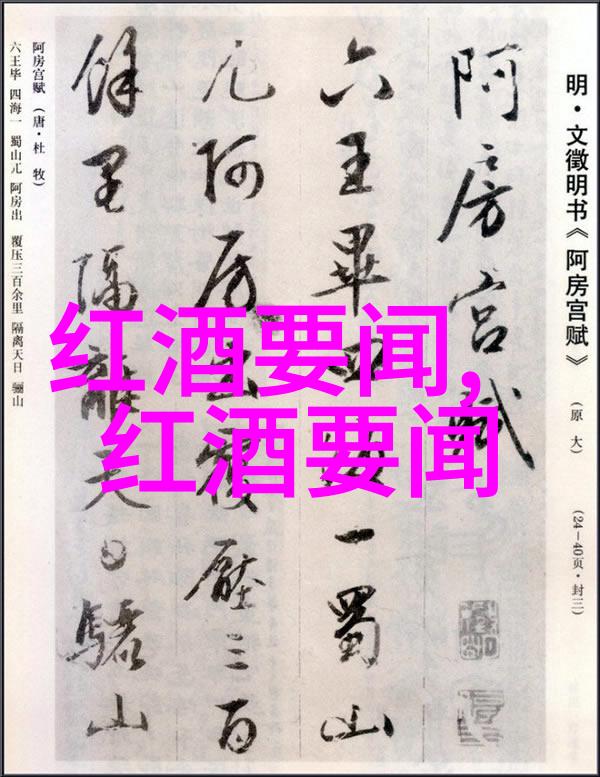 明·文徵明书《阿房宫赋》
(原大)
(24—40页·封三)
阿房宫賦
六王畢四海一蜀山
兀阿房出覆壓三百
餘里隔離天日驪山
阿房宫赋(唐·杜 牧)
六王毕 四海一 蜀山兀 阿房出 覆压三百余里 隔离天日 骊山
红酒要闻,
红酒要闻